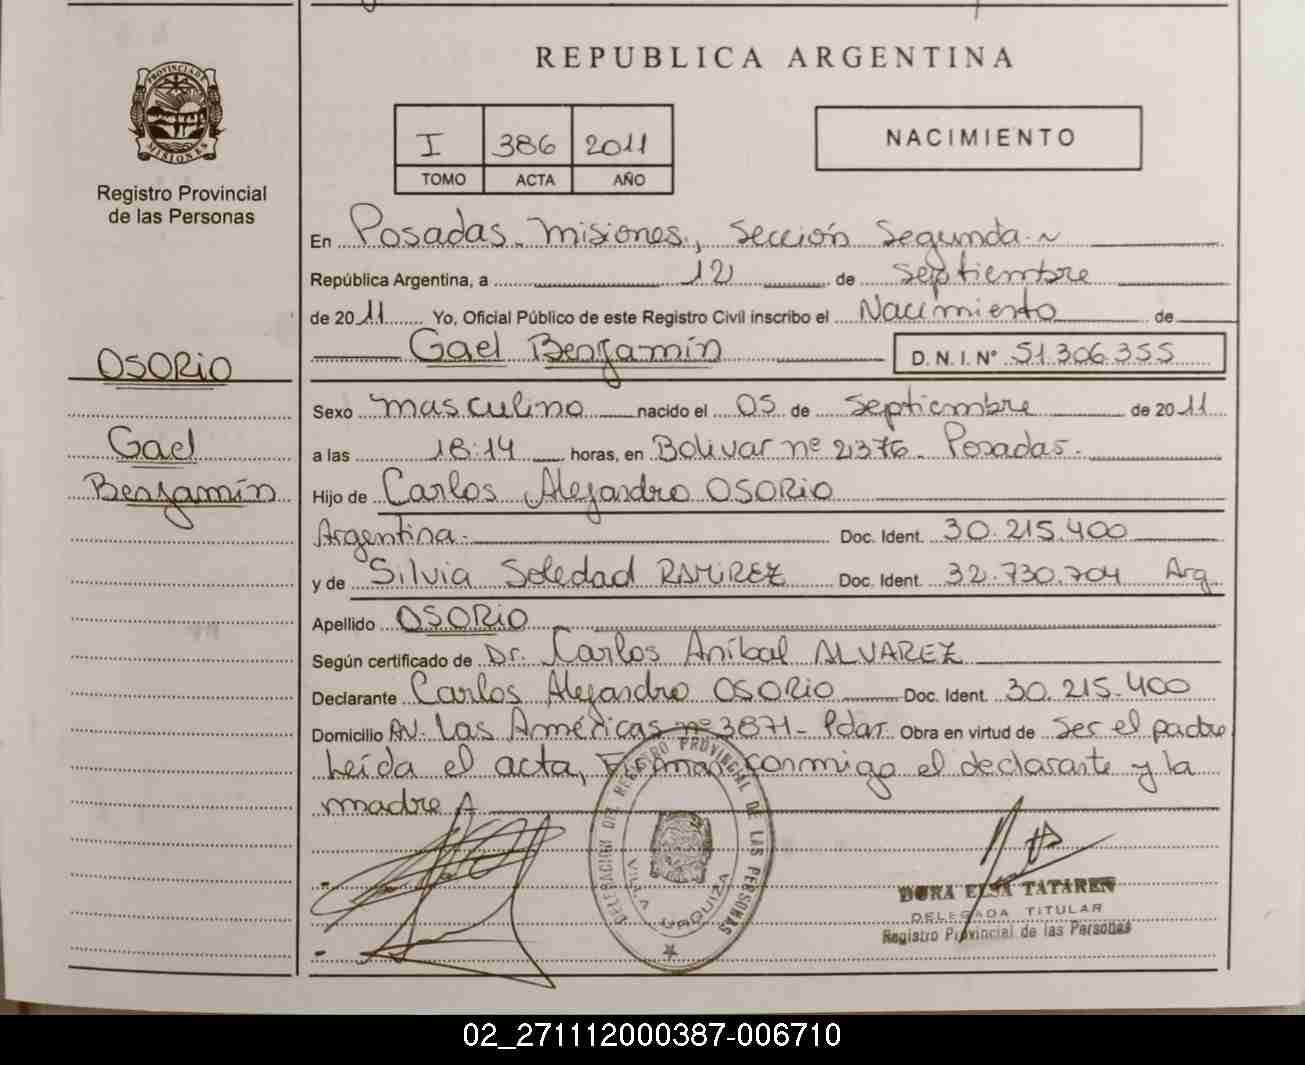 REPUBLICA ARGENTINA
PROVINCIA DE MISIONES
Registro Provincial
de las Personas
I 386 2011
TOMO ACTA AÑO
NACIMIENTO
En Posadas. Misiones, Sección Segunda.
República Argentina, a 12 de septiembre
de 2011 Yo, Oficial Público de este Registro Civil inscribo el Nacimiento de
Gael Benjamín D.N.I. Nº 51.306.355
OSORIO
Gael
Benjamín
Sexo masculino nacido el 05 de septiembre de 2011
a las 18:14 horas, en Bolivar nº 2376 Posadas.
Hijo de Carlos Alejandro OSORIO
Argentina. Doc. Ident. 30.215.400
y de Silvia Soledad RAMIREZ Doc. Ident. 32.730.704 Arg.
Apellido OSORIO
Según certificado de Dr. Carlos Aníbal ALVAREZ
Declarante Carlos Alejandro OSORIO Doc. Ident. 30.215.400
Domicilio AV. Las Américas nº 3871 - Pdas. Obra en virtud de ser el padre
Leída el acta, Firman conmigo el declarante y la
madre
DELEGACION DEL REGISTRO PROVINCIAL DE LAS PERSONAS
VILLA URQUIZA
DORA ELSA TATAREN
DELEGADA TITULAR
Registro Provincial de las Personas
02_271112000387-006710